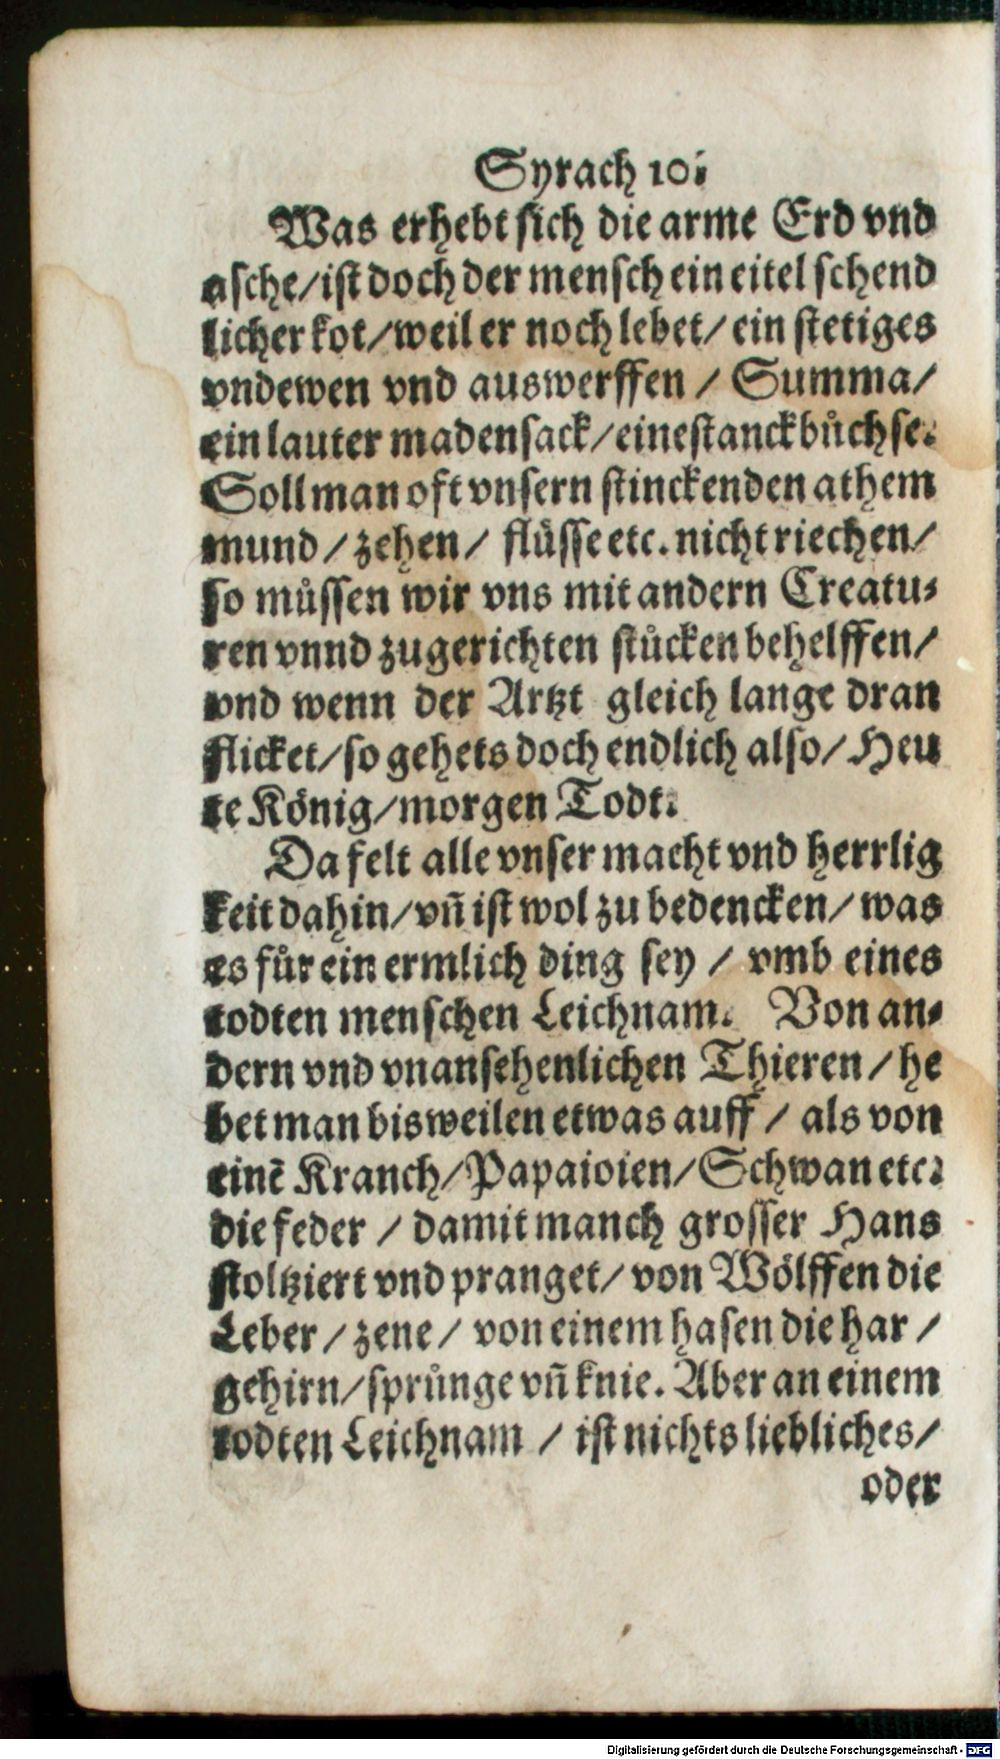 Syrach 10.
Was erhebt sich die arme Erd vnd
asche/ist doch der mensch ein eitel schend
licher kot/weil er noch lebet/ ein stetiges
vndewen vnd auswerffen / Summa/
ein lauter madensack/eine stanckbuͤchse.
Soll man oft vnsern stinckenden athem
mund / zehen / fluͤsse etc. nicht riechen/
so muͤssen wir vns mit andern Creatu⸗
ren vnnd zugerichten stuͤcken behelffen/
vnd wenn der Artzt gleich lange dran
flicket/so gehets doch endlich also/ Heu
te Koͤnig/morgen Todt.
Da felt alle vnser macht vnd herrlig
keit dahin/vn̄ ist wol zu bedencken/ was
es fuͤr ein ermlich ding sey / vmb eines
todten menschen Leichnam. Von an⸗
dern vnd vnansehenlichen Thieren / he
bet man bisweilen etwas auff / als von
einē Kranch/Papaioien/Schwan etc.
die feder / damit manch grosser Hans
stoltziert vnd pranget/ von Woͤlffen die
Leber / zene / von einem hasen die har /
gehirn/spruͤnge vn̄ knie. Aber an einem
todten Leichnam / ist nichts liebliches/
oder
Digitalisierung gefördert durch die Deutsche Forschungsgemeinschaft - DFG